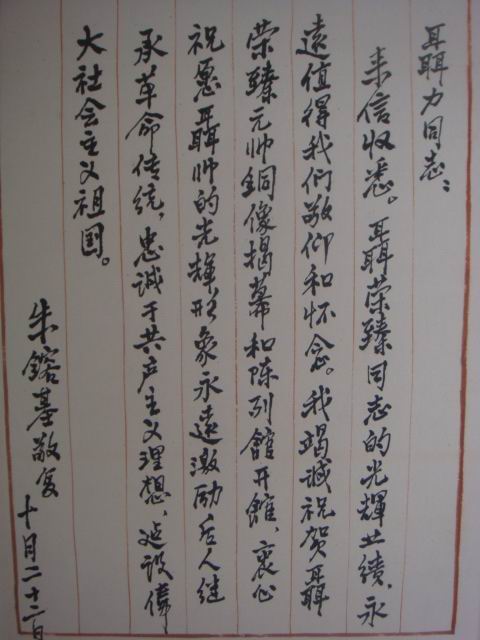 聶力同志：
来信收悉。聶荣臻同志的光輝业绩、永
遠值得我们敬仰和怀念。我竭诚祝贺聶
荣臻元帅銅像揭幕和陈列館开館、衷心
祝愿聶帅的光輝形象永遠激励后人继
承革命传统，忠诚于共产主义理想、建设偉
大社会主义祖国。
朱鎔基敬复
十月二十二日